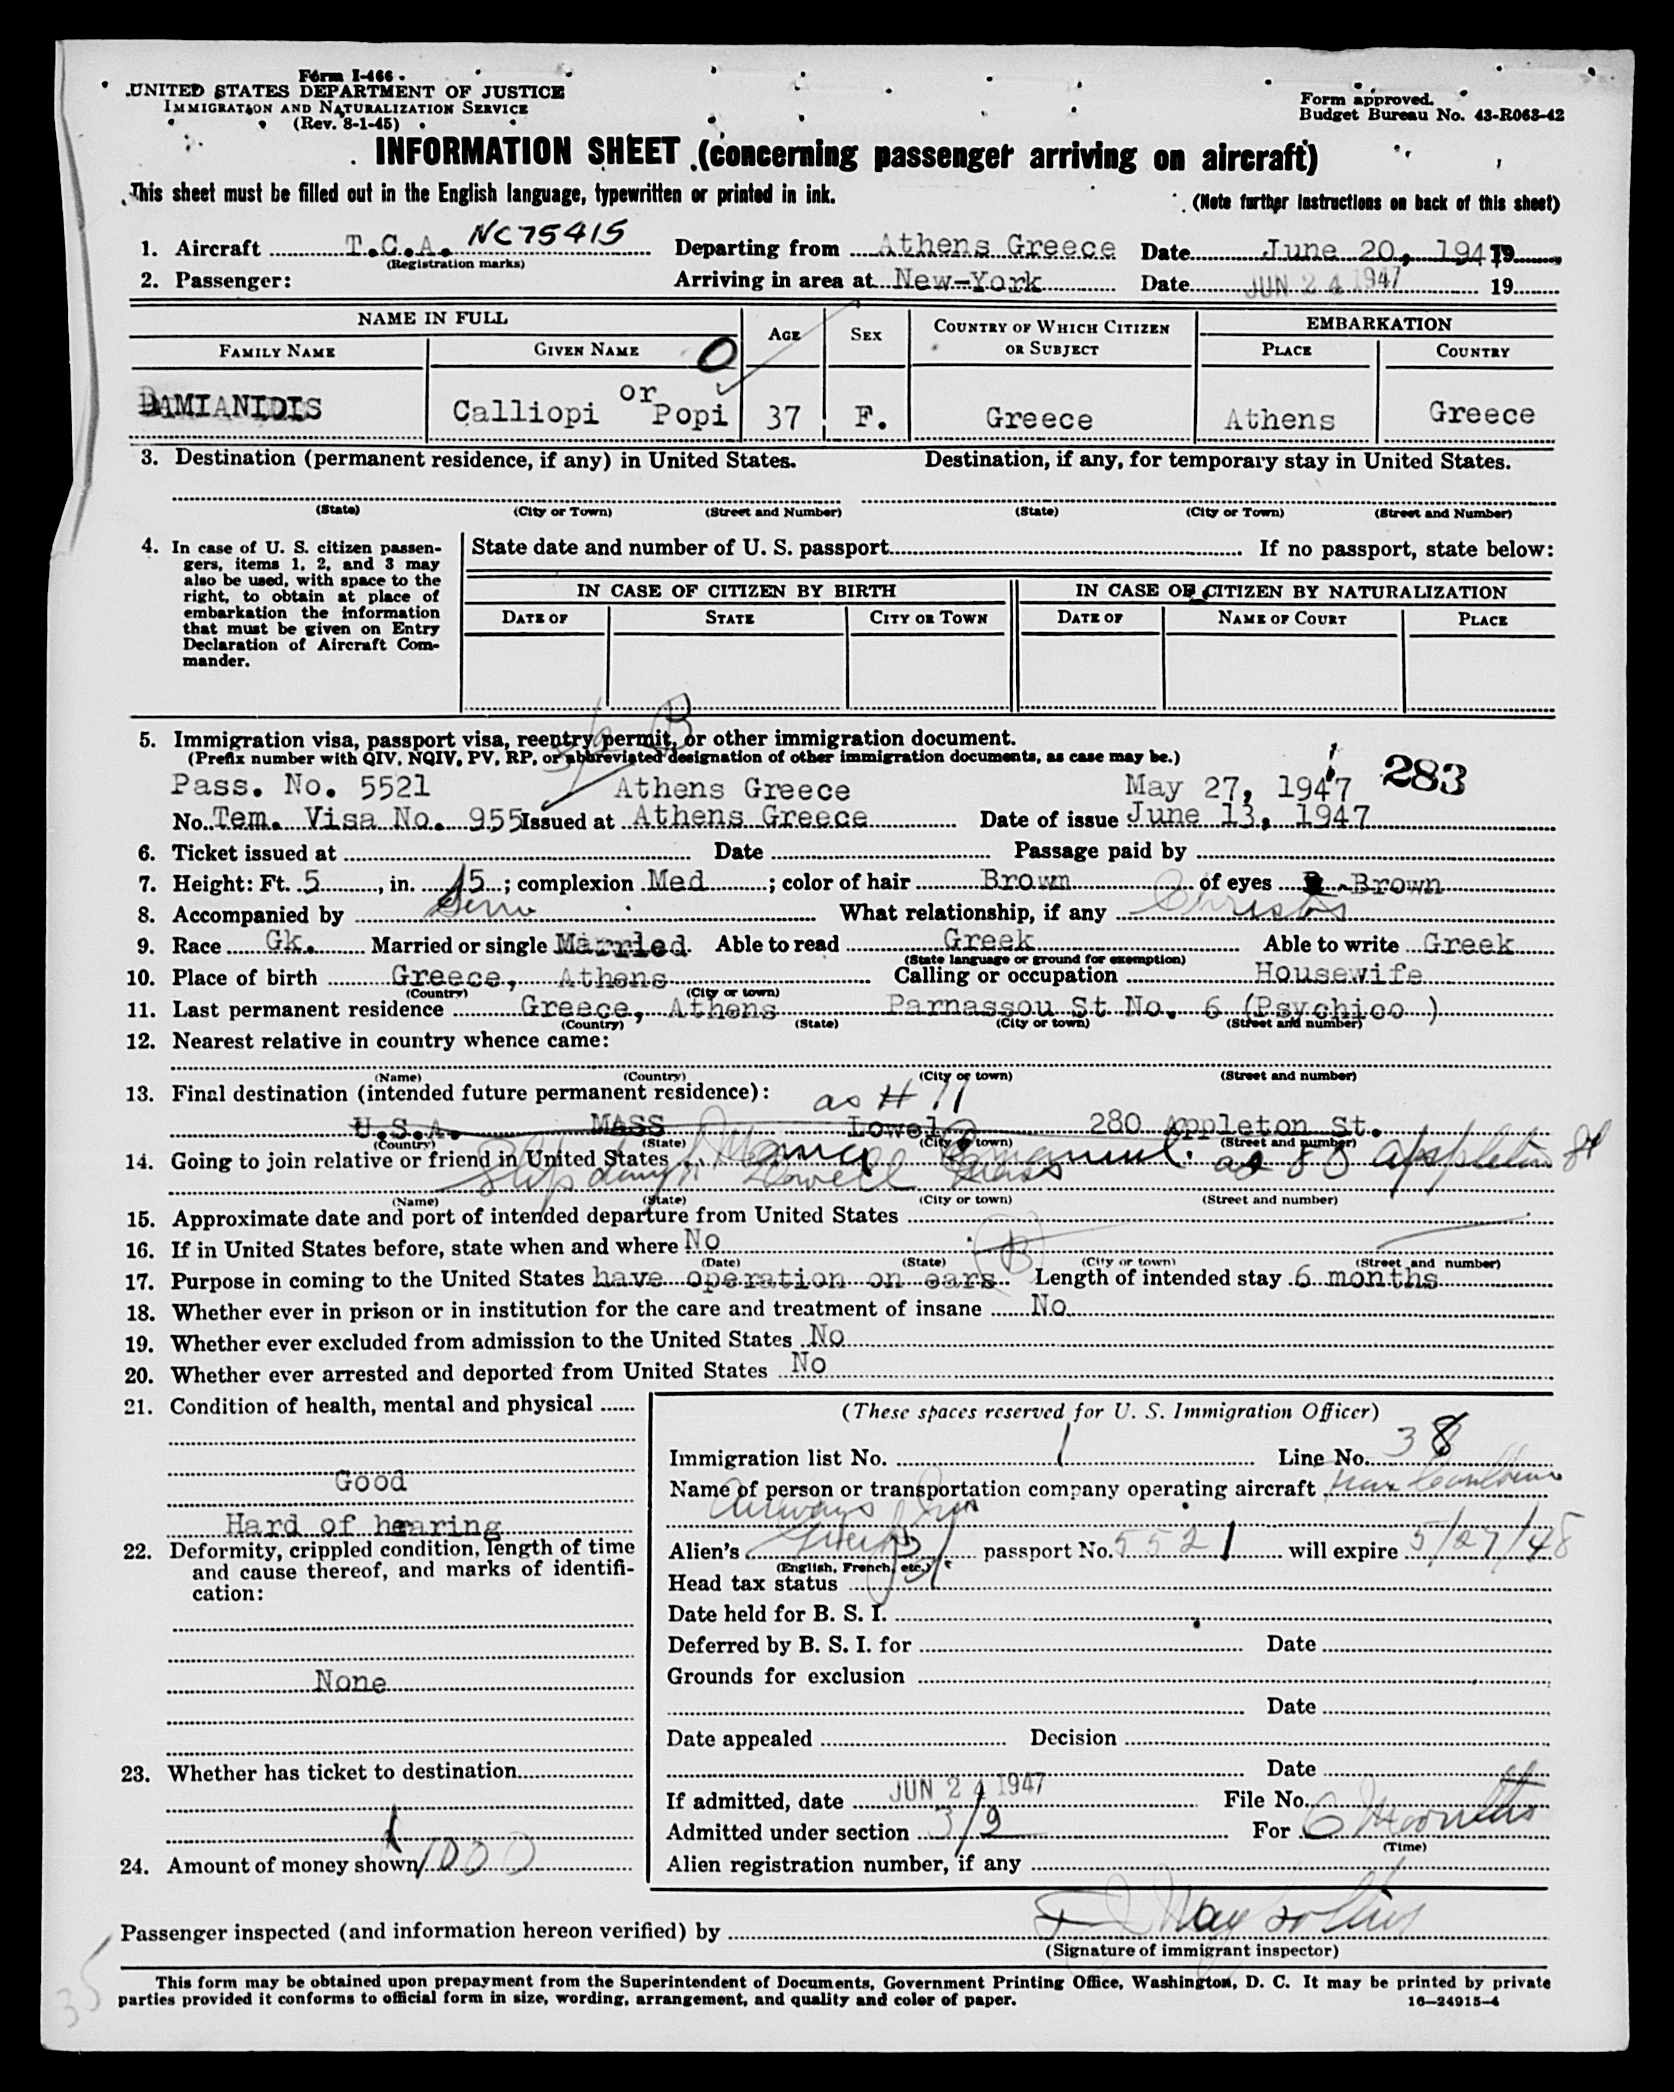 Form I-466
UNITED STATES DEPARTMENT OF JUSTICE
IMMIGRATION AND NATURALIZATION SERVICE
(Rev. 8-1-45)
Form approved.
Budget Bureau No. 43-R063-42
INFORMATION SHEET (concerning passenger arriving on aircraft)
This sheet must be filled out in the English language, typewritten or printed in ink.
(Note further instructions on back of this sheet)
1. Aircraft T.C.A. NC75415 Departing from Athens Greece Date June 20, 1947 19
(Registration marks)
2. Passenger: Arriving in area at New-York Date JUN 24 1947 19
NAME IN FULL AGE SEX COUNTRY OF WHICH CITIZEN OR SUBJECT EMBARKATION
FAMILY NAME GIVEN NAME PLACE COUNTRY
DAMIANIDIS Calliopi or Popi 37 F. Greece Athens Greece
3. Destination (permanent residence, if any) in United States. Destination, if any, for temporary stay in United States.
(State) (City or Town) (Street and Number) (State) (City or Town) (Street and Number)
4. In case of U. S. citizen passen-
gers, items 1, 2, and 3 may
also be used, with space to the
right, to obtain at place of
embarkation the information
that must be given on Entry
Declaration of Aircraft Com-
mander.
State date and number of U. S. passport If no passport, state below:
IN CASE OF CITIZEN BY BIRTH IN CASE OF CITIZEN BY NATURALIZATION
DATE OF STATE CITY OR TOWN DATE OF NAME OF COURT PLACE
5. Immigration visa, passport visa, reentry permit, or other immigration document.
(Prefix number with QIV, NQIV, PV, RP, or abbreviated designation of other immigration documents, as case may be.)
Pass. No. 5521 Athens Greece May 27, 1947 283
No. Tem. Visa No. 955 Issued at Athens Greece Date of issue June 13, 1947
6. Ticket issued at Date Passage paid by
7. Height: Ft. 5, in. 15; complexion Med; color of hair Brown of eyes Brown
8. Accompanied by What relationship, if any
9. Race Gk. Married or single Married. Able to read Greek Able to write Greek
(State language or ground for exemption)
10. Place of birth Greece, Athens Calling or occupation Housewife
(Country) (City or town)
11. Last permanent residence Greece, Athens Parnassou St No. 6 (Psychico )
(Country) (State) (City or town) (Street and number)
12. Nearest relative in country whence came:
(Name) (Country) (City or town) (Street and number)
13. Final destination (intended future permanent residence): as # 11
U.S.A. MASS Lowel 280 Appleton St.
(Country) (State) (City or town) (Street and number)
14. Going to join relative or friend in United States
Lowell Mass Appleton St
(Name) (State) (City or town) (Street and number)
15. Approximate date and port of intended departure from United States
16. If in United States before, state when and where No
(Date) (State) (City or town) (Street and number)
17. Purpose in coming to the United States have operation on ears Length of intended stay 6 months
18. Whether ever in prison or in institution for the care and treatment of insane No
19. Whether ever excluded from admission to the United States No
20. Whether ever arrested and deported from United States No
21. Condition of health, mental and physical
Good
Hard of hearing
22. Deformity, crippled condition, length of time
and cause thereof, and marks of identifi-
cation:
None
23. Whether has ticket to destination
24. Amount of money shown 1000
(These spaces reserved for U. S. Immigration Officer)
Immigration list No. 1 Line No. 38
Name of person or transportation company operating aircraft
Airways Inc
Alien's Greek passport No. 5521 will expire 5/27/48
(English, French, etc.)
Head tax status
Date held for B. S. I.
Deferred by B. S. I. for Date
Grounds for exclusion
Date
Date appealed Decision
Date
If admitted, date JUN 24 1947 File No.
Admitted under section 3/2 For 6 Months
(Time)
Alien registration number, if any
Passenger inspected (and information hereon verified) by
(Signature of immigrant inspector)
35
This form may be obtained upon prepayment from the Superintendent of Documents, Government Printing Office, Washington, D. C. It may be printed by private
parties provided it conforms to official form in size, wording, arrangement, and quality and color of paper.
16—24915-4